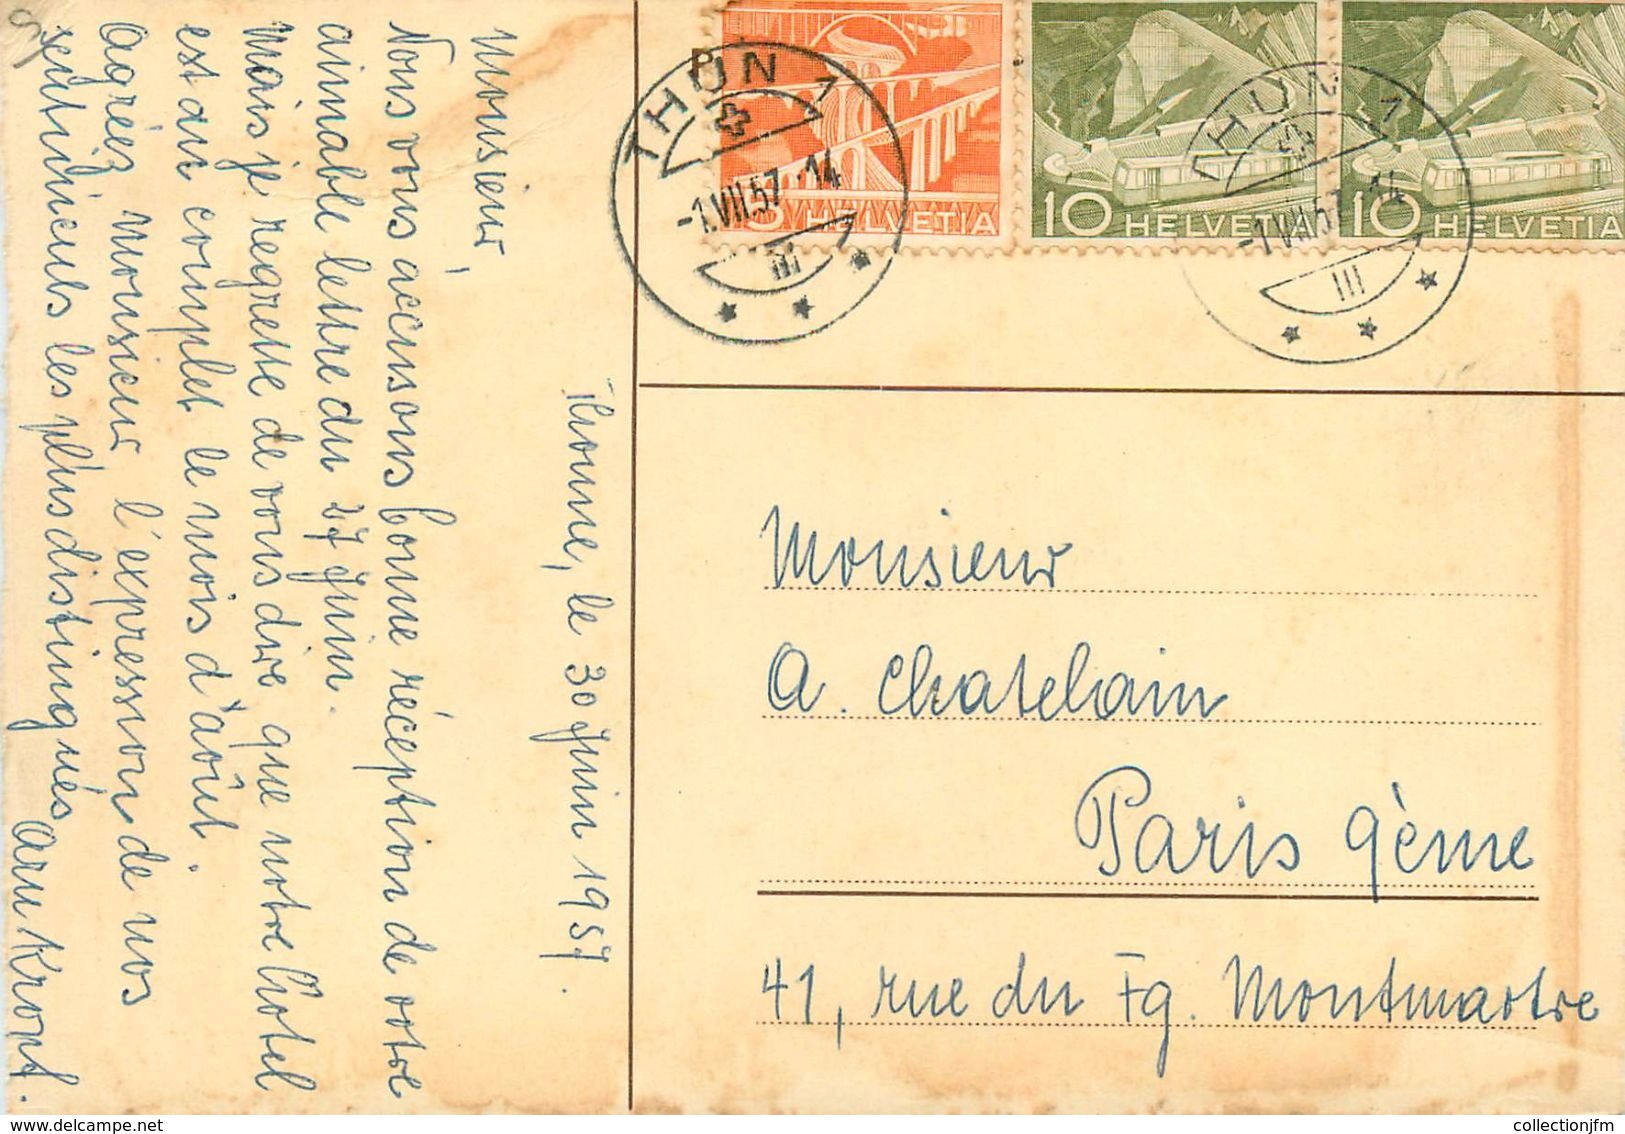 Thoune, le 30 Juin 1957.
Monsieur,
Nous vous accusons bonne réception de votre
aimable lettre du 27 Juin.
Mais je regrette de vous dire que notre hôtel
est au complet le mois d'août.
Agréez Monsieur l'expression de nos
sentiments les plus distingués
THUN 1
-1.VII.57.-14
III
5 HELVETIA
10 HELVETIA
10 HELVETIA
THUN 1
-1.VII.57.-14
III
Monsieur
A. Chatelain
Paris 9ème
41, rue du Fg. Montmartre
collectionjfm
www.delcampe.net